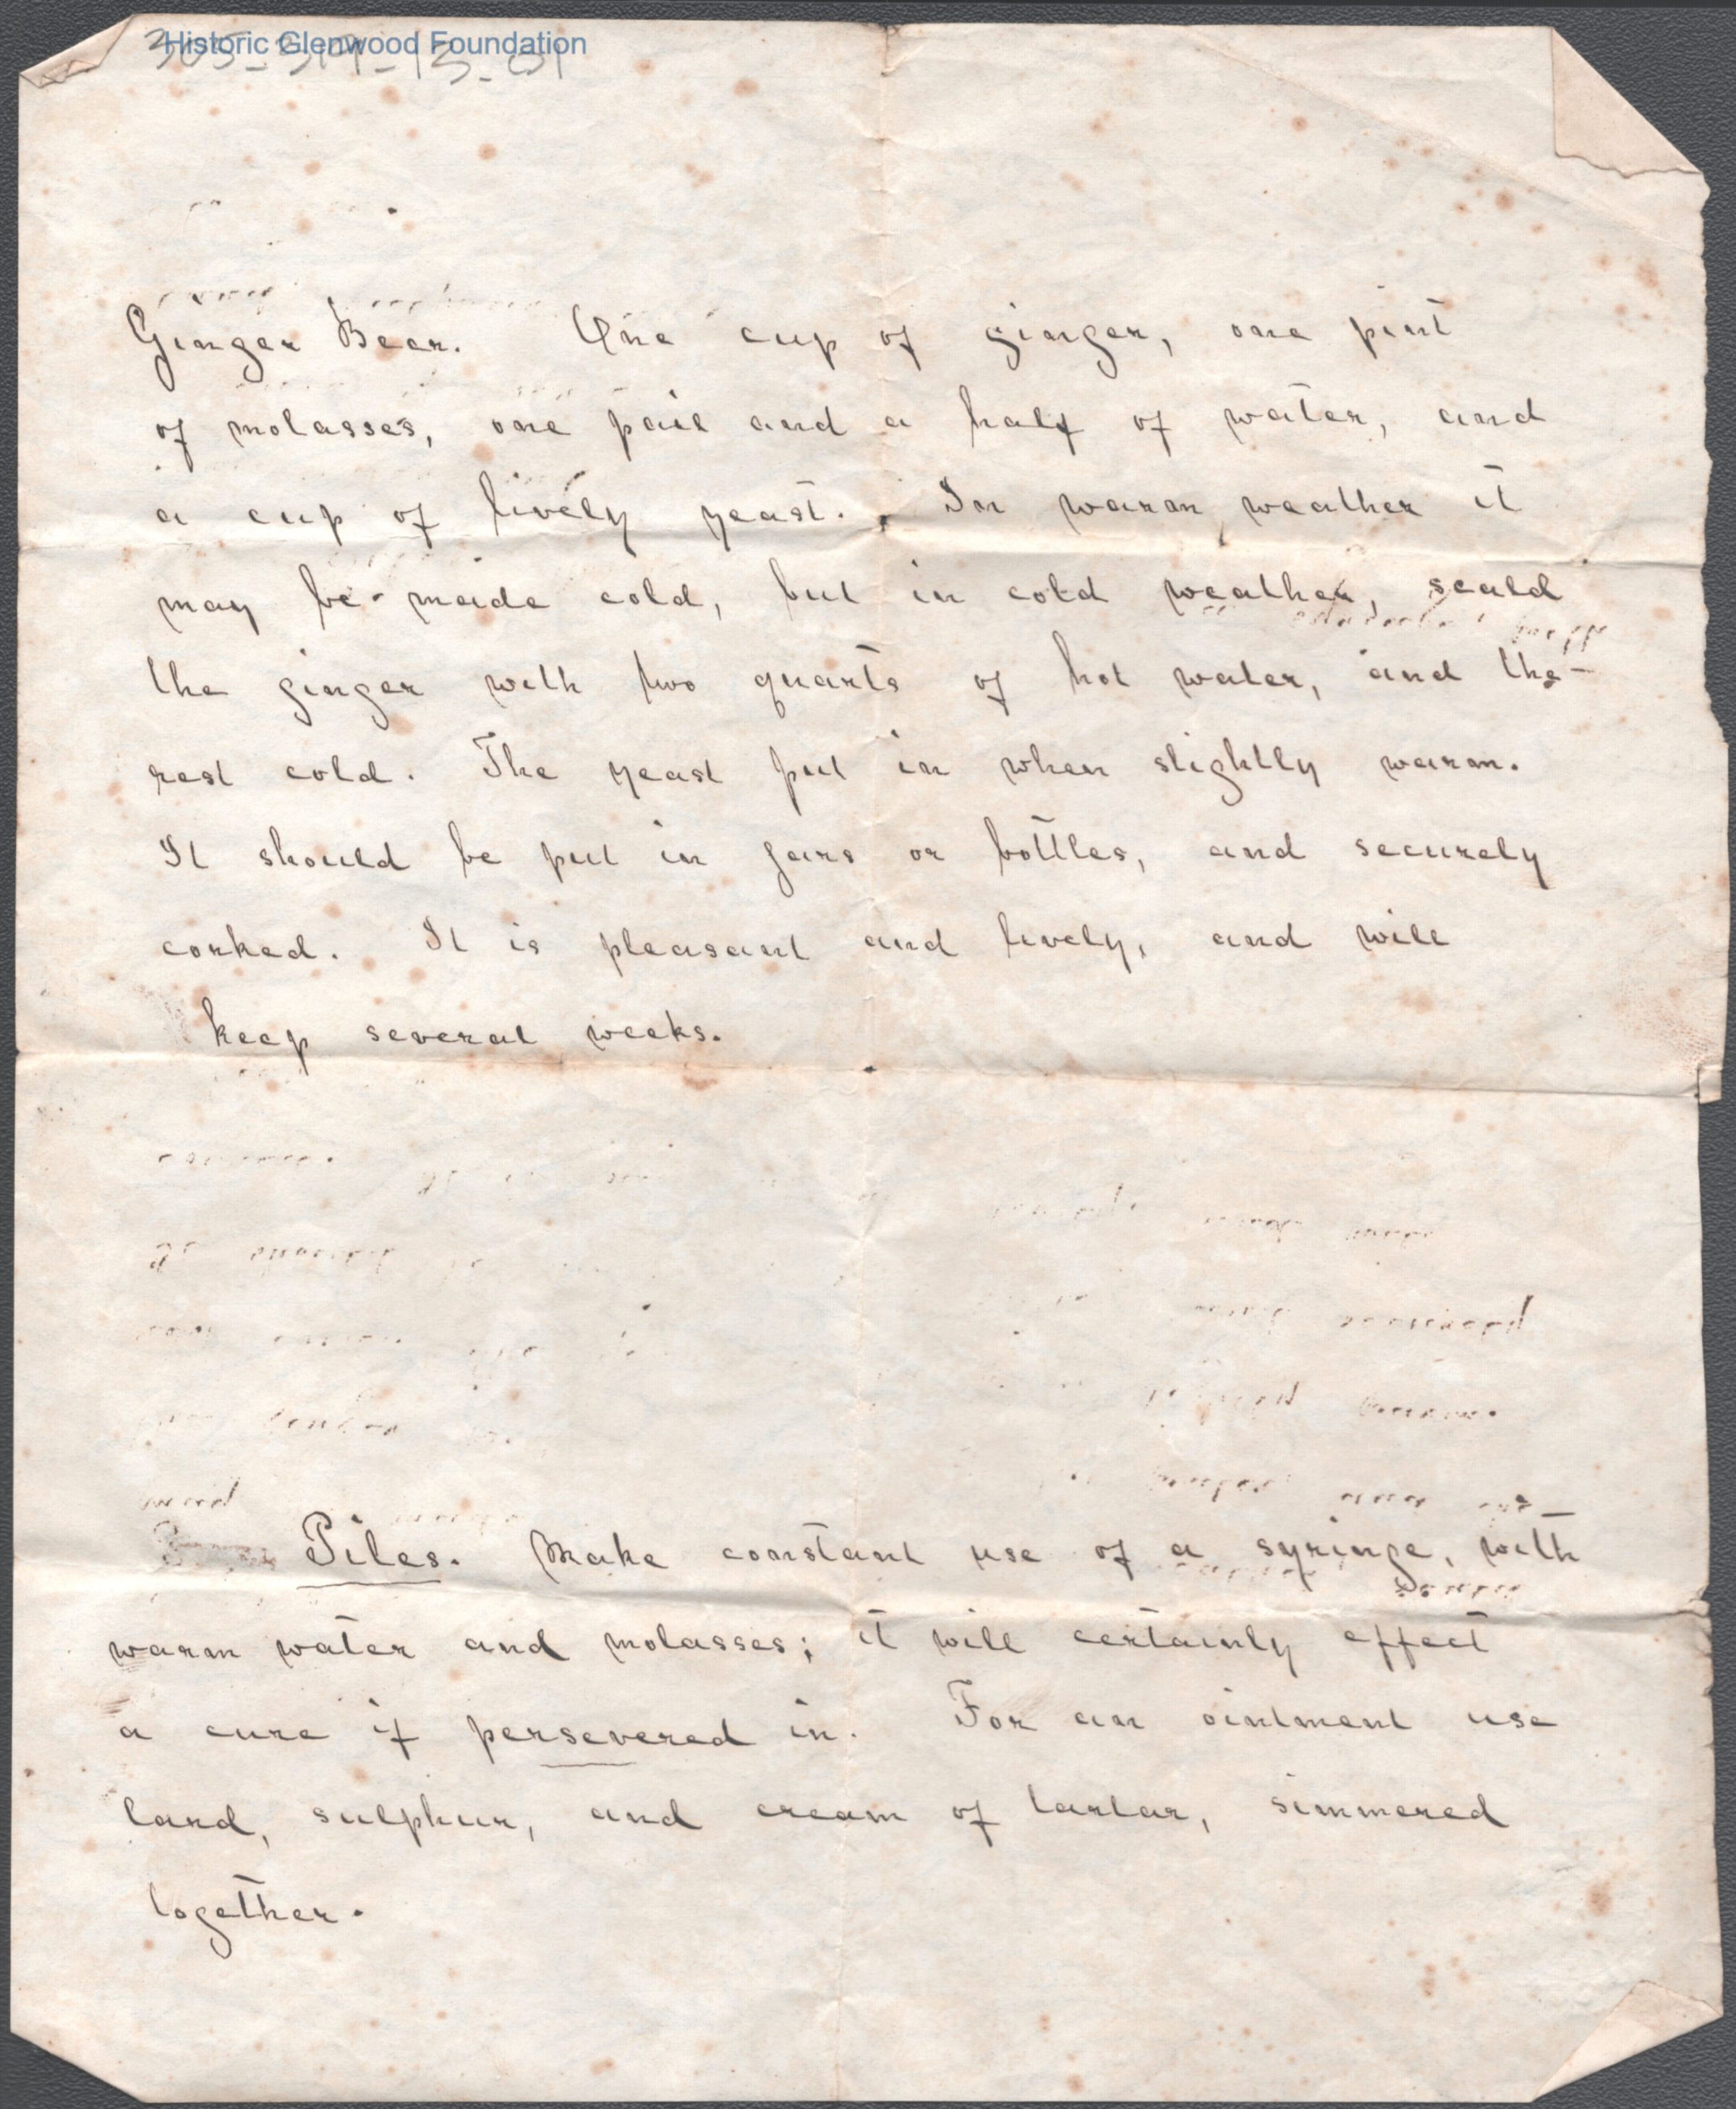 Historic Glenwood Foundation
Ginger Beer. One cup of ginger, one pint
of molasses, one pail and a half of water, and
a cup of lively yeast. In warm weather it
may be made cold, but in cold weather, scald
the ginger with two quarts of hot water, and the
rest cold. The yeast put in when slightly warm.
It should be put in jars or bottles, and securely
corked. It is pleasant and lively, and will
keep several weeks.
Piles. Make constant use of a syringe, with
warm water and molasses; it will certainly effect
a cure if persevered in. For an ointment use
lard, sulphur, and cream of tartar, simmered
together.